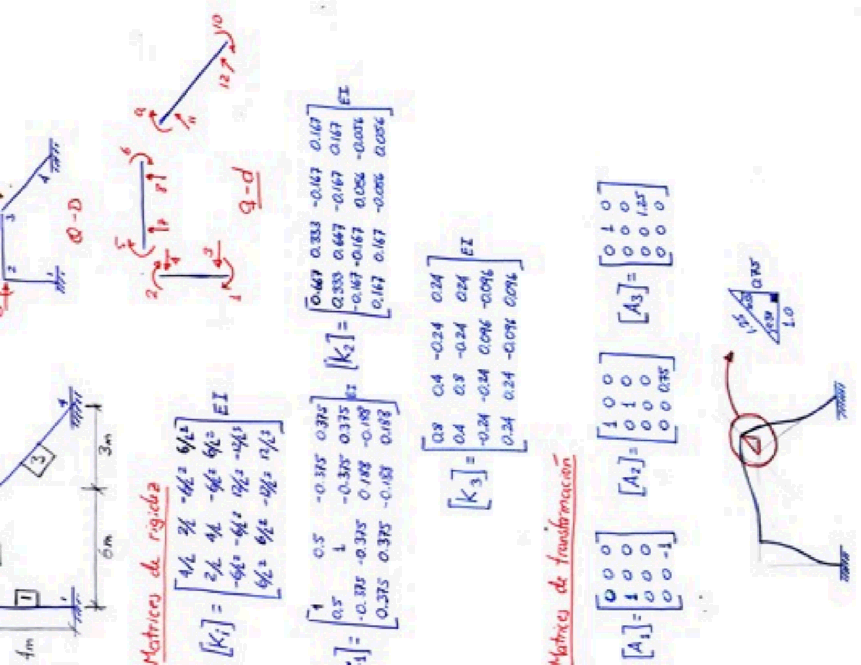 4m
1
3
4
6m
3m
2
3
4
Q-D
2
4
3
1
5
6
7
8
9
11
12
10
q-d
Matrices de rigidez
[Ki] = [ 4/L 2/L -6/L² 6/L²
2/L 4/L -6/L² 6/L²
-6/L² -6/L² 12/L³ -12/L³
6/L² 6/L² -12/L³ 12/L³ ] EI
1] = [ 1 0.5 -0.375 0.375
0.5 1 -0.375 0.375
-0.375 -0.375 0.188 -0.188
0.375 0.375 -0.188 0.188 ] EI
[K2] = [ 0.667 0.333 -0.167 0.167
0.333 0.667 -0.167 0.167
-0.167 -0.167 0.056 -0.056
0.167 0.167 -0.056 0.056 ] EI
[K3] = [ 0.8 0.4 -0.24 0.24
0.4 0.8 -0.24 0.24
-0.24 -0.24 0.096 -0.096
0.24 0.24 -0.096 0.096 ] EI
Matrices de transformación
[A1] = [ 0 0 0
1 0 0
0 0 0
0 0 -1 ]
[A2] = [ 1 0 0
0 1 0
0 0 0
0 0 0.75 ]
[A3] = [ 0 1 0
0 0 0
0 0 1.25
0 0 0 ]
1.25
0.75
1.0